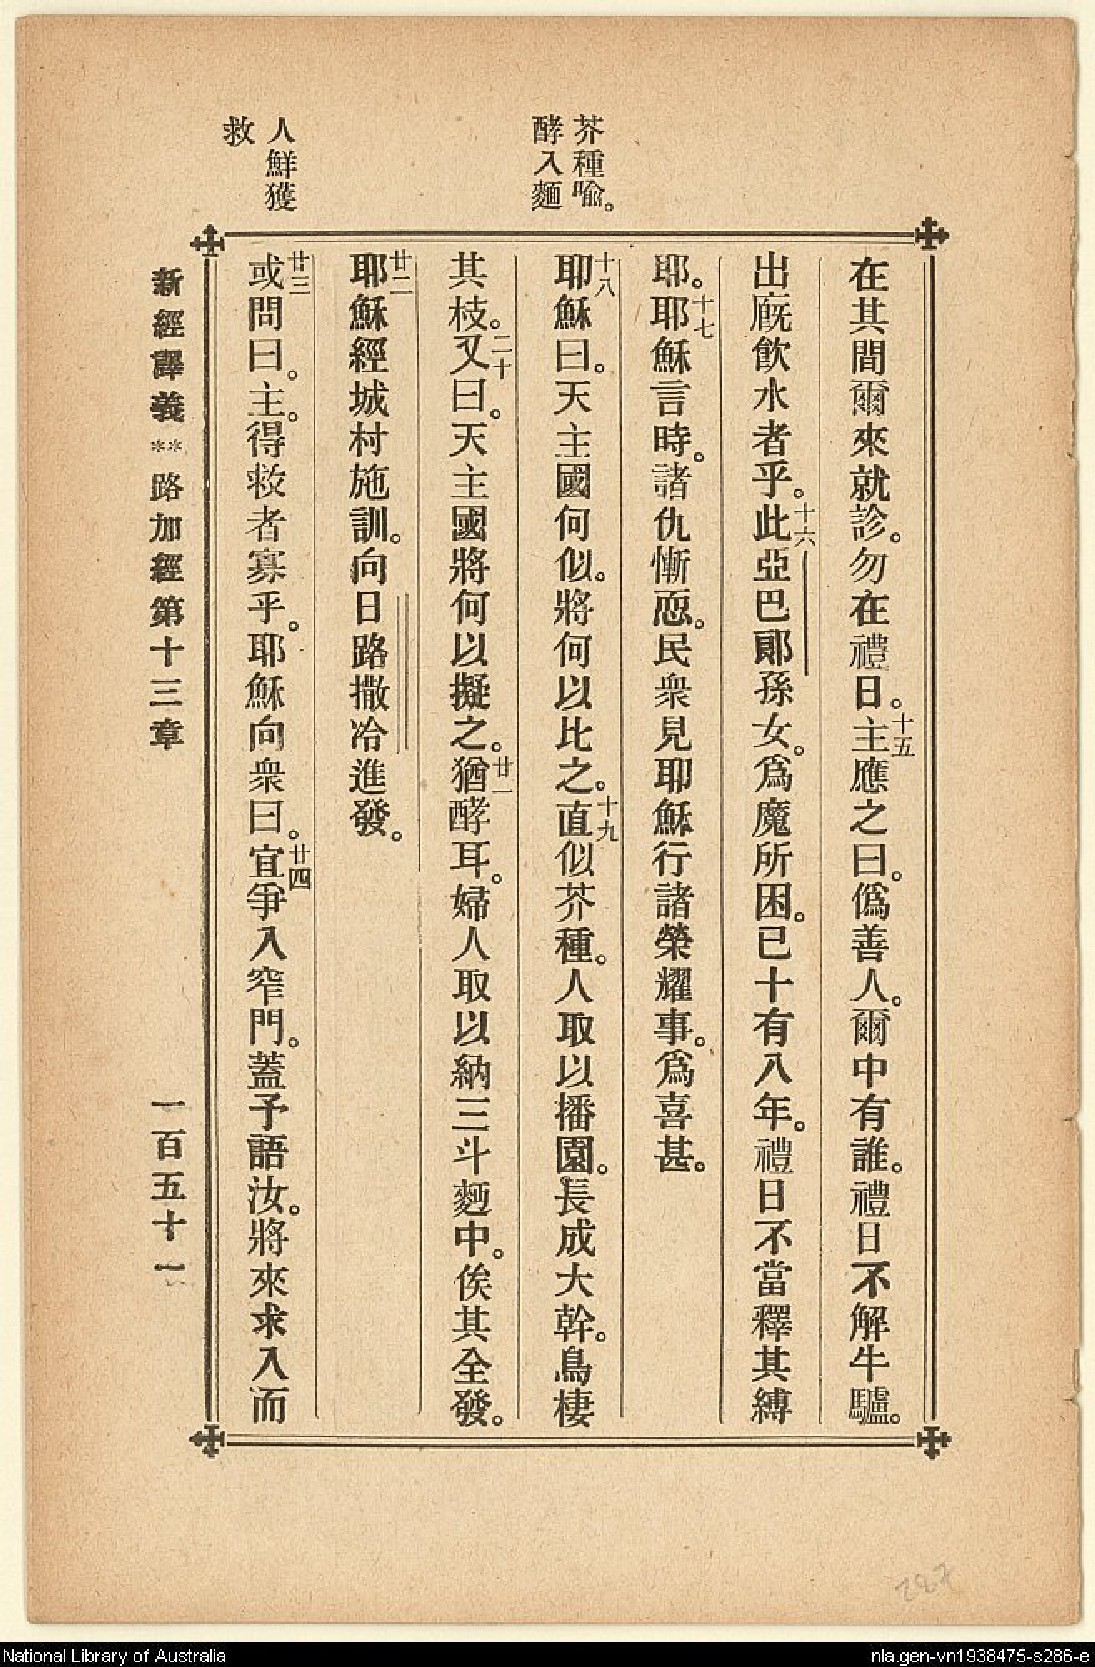 芥種喻。
酵入麵
人鮮獲
救
在其間爾來就診。勿在禮日。十五主應之曰。僞善人。爾中有誰。禮日不解牛驢。
出廐飮水者乎。十六此亞巴郞孫女。爲魔所困。已十有八年。禮日不當釋其縛
耶。十七耶穌言時。諸仇慚恧。民衆見耶穌行諸榮耀事。爲喜甚。
十八耶穌曰。天主國何似。將何以比之。十九直似芥種。人取以播園。長成大幹。鳥棲
其枝。二十又曰。天主國將何以擬之。廿一猶酵耳。婦人取以納三斗麪中。俟其全發。
廿二耶穌經城村施訓。向日路撒冷進發。
廿三或問曰。主。得救者寡乎。耶穌向衆曰。廿四宜爭入窄門。蓋予語汝。將來求入而
新經譯義**路加經第十三章 一百五十一
227
National Library of Australia
nla.gen-vn1938475-s286-e